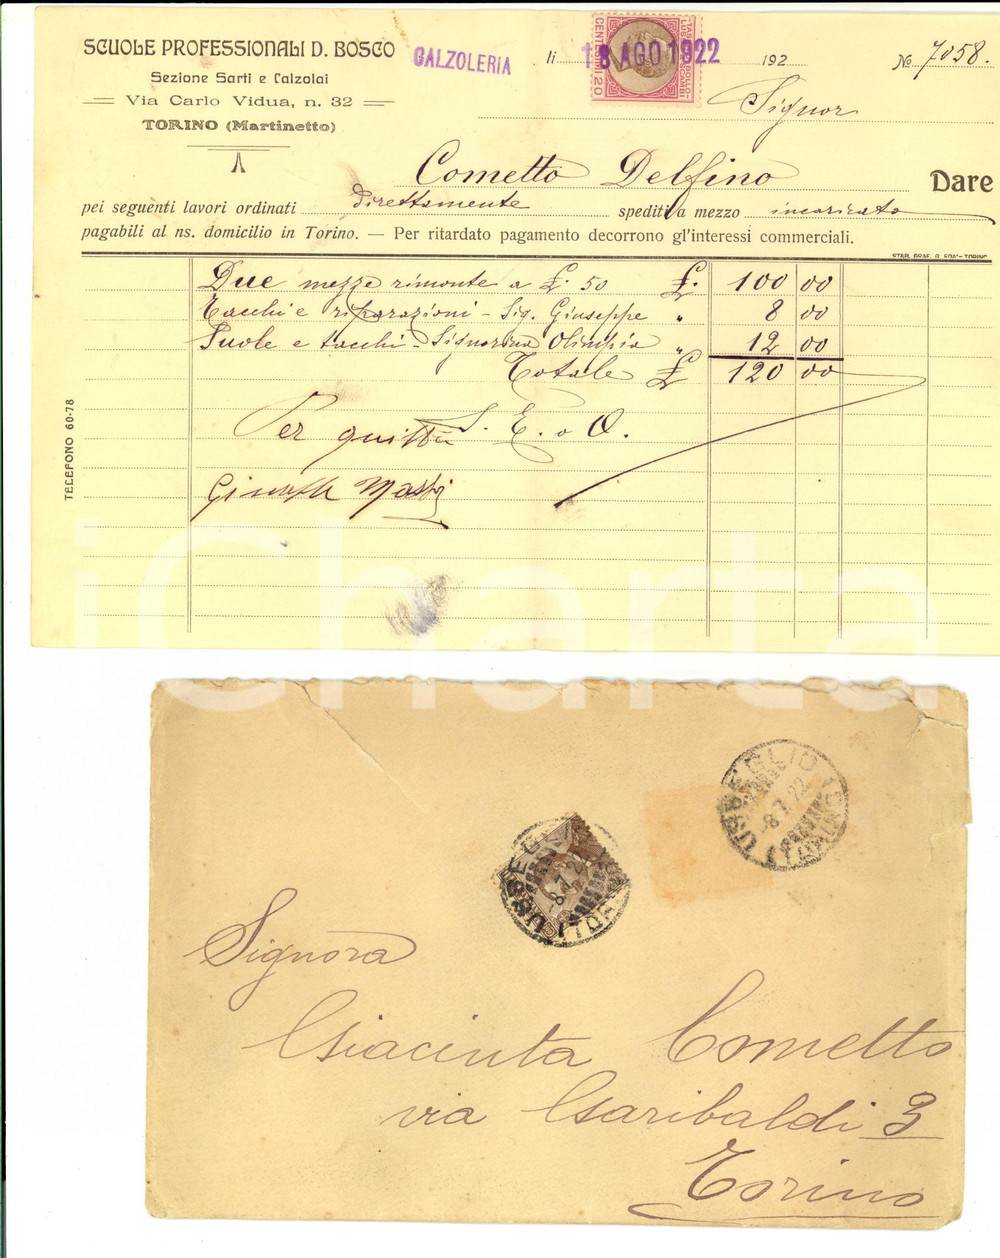 SCUOLE PROFESSIONALI D. BOSCO
Sezione Sarti e Calzolai
Via Carlo Vidua, n. 32
TORINO (Martinetto)
CALZOLERIA
li 18 AGO 1922 192 No 7058.
CENTESIMI 20
Signor
Cometto Delfino Dare
pei seguenti lavori ordinati direttamente spediti a mezzo incaricato
pagabili al ns. domicilio in Torino. — Per ritardato pagamento decorrono gl'interessi commerciali.
Due mezze rimonte a £. 50 £. 100 00
Tacchi e riparazioni - Sig. Giuseppe " 8 00
Suole e tacchi - Signorina Olimpia " 12 00
Totale £ 120 00
S. E. o O.
Per quitt
TELEFONO 60-78
iCharta
USSEGLIO (TORINO)
8.7.22
USSEGLIO (TORINO)
8.7.22
Signora
Giacinta Cometto
via Garibaldi 3
Torino